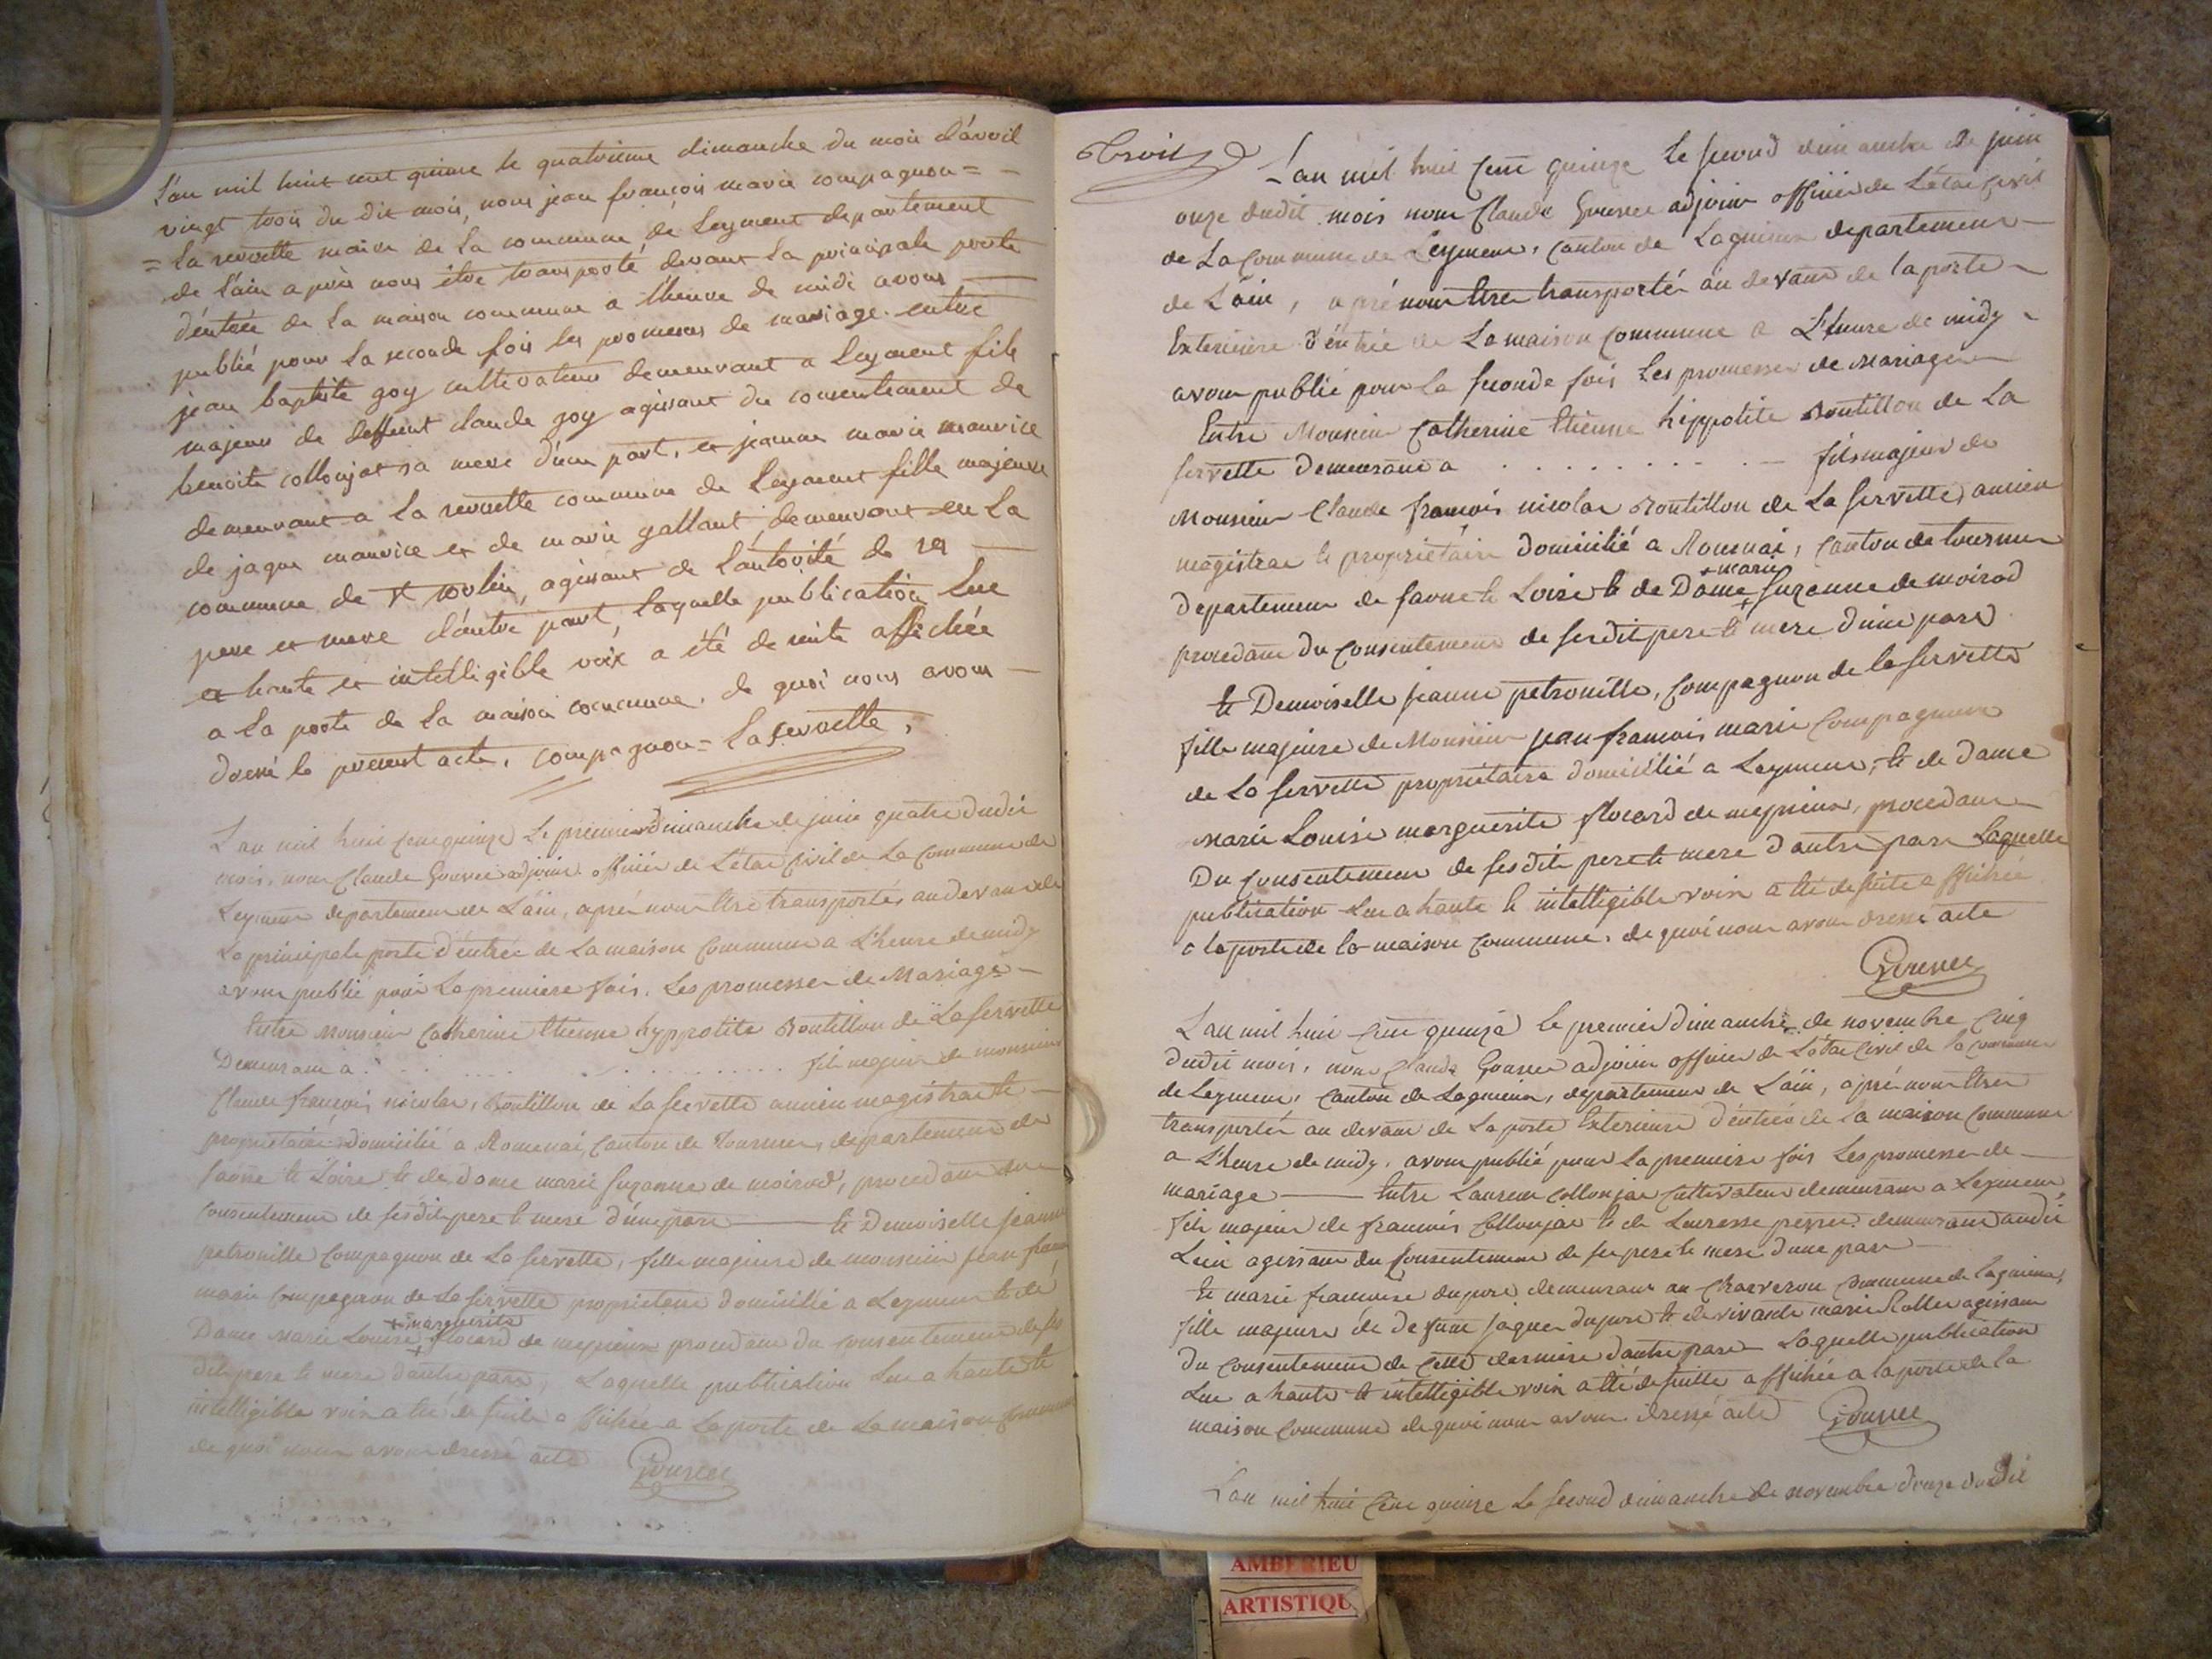 L'an mil huit cent quinze le quatrieme dimanche du mois d'avril
vingt trois du dit mois, nous jean françois marie compagnon =
= la servette maire de la commune de Leyment departement
de l'ain après nous être transporté devant la principale porte
d'entrée de la maison commune a l'heure de midi avons
publié pour la seconde fois les promesses de mariage entre
jean baptiste goy cultivateur demeurant a Leyment fils
majeur de deffunt claude goy agissant du consentement de
benoite collonjat sa mere d'une part, et jeanne marie maurice
demeurant a la servette commune de Leyment fille majeure
de jaque maurice et de marie gallant, demeurant en la
commune de st vorlin, agissant de l'autorité de ses
pere et mere d'autre part, laquelle publication lue
a haute et intelligible voix a été de suite affichée
a la porte de la maison commune, de quoi nous avons
dressé le présent acte, compagnon = la servette,
L'an mil huit cent quinze Le premier dimanche de juin quatre dudit
mois, nous Claude Gousset adjoint officier de L'état Civil de La Commune de
Leyment departement de L'ain, après nous être transportés au devant de
La principale porte d'entrée de La maison Commune a L'heure de midy
avons publié pour La premiere fois, Les promesses de Mariage
Entre Monsieur Catherine Etienne hyppolite Boutillon de La Servette
Demeurant à . . . . . fils majeur de monsieur
Claude françois nicolas, Boutillon de La Servette ancien magistrat et
propriétaire domicilié a Romenai, Canton de Tournus, departement de
Saone et Loire et de dame marie Suzanne de moirod, procedant du
Consentement de sesdits pere et mere d'une part et Demoiselle jeanne
petronille Compagnon de La Servette, fille majeure de monsieur jean fran
marie Compagnon de La Servette propriétaire domicilié a Leyment et de
+ marguerite
Dame Marie Louise + flocard de mepieux procedant du consentement de ses
dits pere et mere d'autre part, Laquelle publication Lue a haute et
intelligible voix a été de suite affichée a La porte de La maison commune
de quoi nous avons dressé acte Gousset
L'an mil huit Cent quinze le second dimanche de juin
onze dudit mois nous Claude Gousset adjoint officier de L'état Civil
de La Commune de Leyment, Canton de Lagnieux departement
de L'ain, après nous être transportés au devant de la porte
Exterieure d'entrée de La maison Commune a L'heure de midy
avons publié pour La seconde fois Les promesses de Mariage
Entre Monsieur Catherine Etienne hippolite Boutillon de La
Servette Demeurant a . . . . . fils majeur de
Monsieur Claude françois nicolas Boutillon de La Servette, ancien
magistrat et propriétaire domicilié a Romenai, Canton de tournus
+ marie
Departement de Saone et Loire et de Dame + Suzanne de moirod
procedant du Consentement de sesdits pere et mere d'une part
et Demoiselle jeanne petronille, Compagnon de la Servette
fille majeure de Monsieur jean françois marie Compagnon
de La Servette propriétaire domicilié a Leyment, et de dame
Marie Louise marguerite flocard de mepieux, procedant
Du Consentement de sesdits pere et mere d'autre part Laquelle
publication Lue a haute et intelligible voix a été de suite affichée
a la porte de la maison Commune, de quoi nous avons dressé acte
Gousset
L'an mil huit Cent quinze le premier dimanche de novembre Cinq
dudit mois, nous Claude Gousset adjoint officier de L'état Civil de la Commune
de Leyment, Canton de Lagnieux, departement de L'ain, après nous être
transportés au devant de La porte Exterieure d'entrée de la maison Commune
a L'heure de midy, avons publié pour La premiere fois Les promesses de
mariage Entre Laurent Collonjat Cultivateur demeurant a Leyment
fils majeur de françois Collonjat et de demeurant audit
Lieu agissant du Consentement de ses pere et mere d'une part
Et marie françoise dupord demeurant au Commune de Lagnieux
fille majeure de defunt jaques dupord et de vivante marie Rollet agissant
Du Consentement de Cette derniere d'autre part Laquelle publication
Lue a haute et intelligible voix a été de suitte affichée a la porte de la
maison Commune de quoi nous avons dressé acte Gousset
L'an mil huit Cent quinze Le second dimanche de novembre douze dudit
AMBERIEU
ARTISTIQU